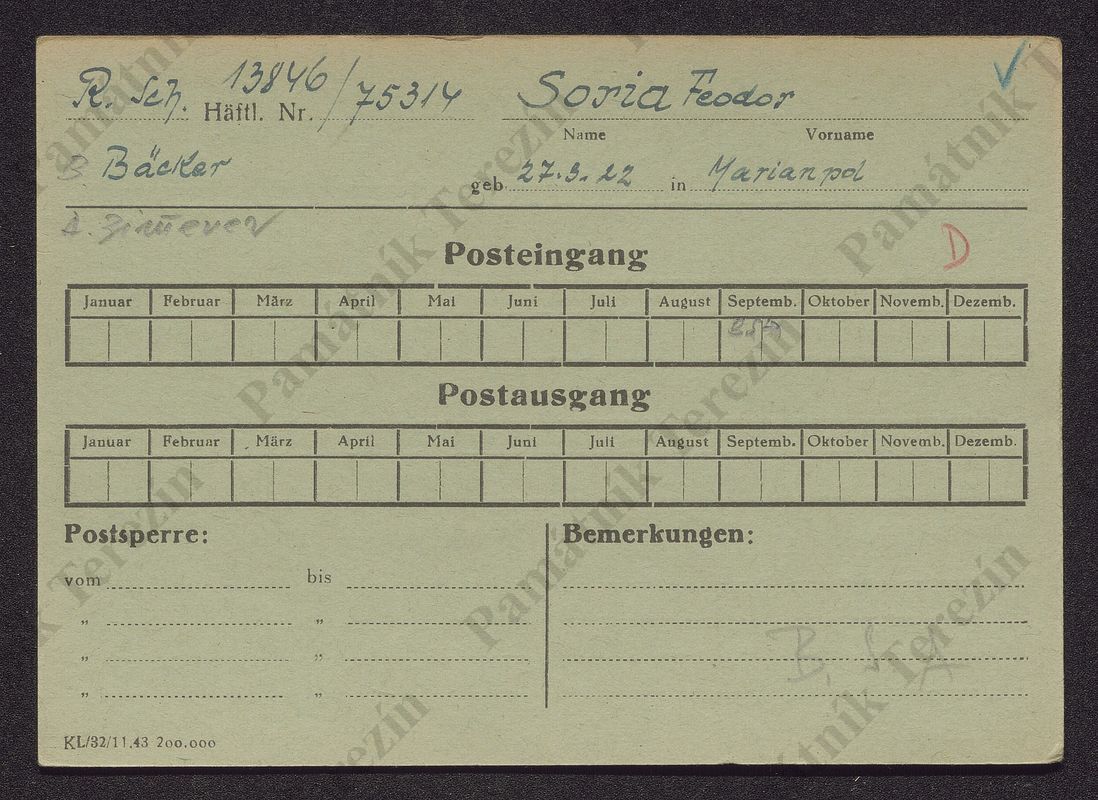 R. Sch. 13846/75314 Soria Feodor
Häftl. Nr. Name Vorname
B Bäcker geb. 27.3.22 in Marianpol
A. Zimerer
Posteingang D
Januar Februar März April Mai Juni Juli August Septemb. Oktober Novemb. Dezemb.
Postausgang
Januar Februar März April Mai Juni Juli August Septemb. Oktober Novemb. Dezemb.
Postsperre: Bemerkungen:
vom bis
„ „
„ „
B.
„ „
KL/32/11.43 200.000
Památník Terezín